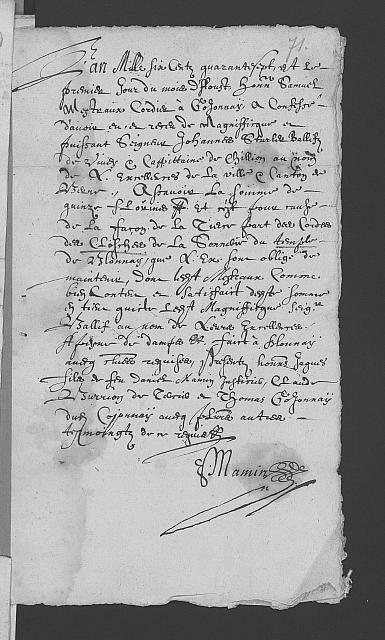 71.
L'an Mille six Centz quarante sept, et le
premier Jour du mois d'Aoust, honn. Samuel
Mestraux Cordier à Cojonnay a Confessé
d'avoir eu et receu de Magnifficque et
puissant Seigneur Johannes Steiler Ballifz
de Viuey & Cappittaine de Chillion au nom
de L. Excellences de la ville & Canton de
Berne, Asçavoir La somme de
quinze florins Et c'est pour cause
de La façon de La Tierce part des Cordes
des Closches de La Sonnerie du temple
de Blonnay, que L. Ex. sont obligé de
maintenir, dont Ledit Mestraux Comme
bien Content et Satisfait desdite somme
en tient quitte Ledit Magnifficque Seigr.
Ballif au nom de Leurs Excellences
faict à Blonnay
avecq clauses requises, presentz honn. Jaques
filz de feu Daniel Mamin Justicier, Claude
de & Thomas Cojonnay
dudit Cojonnay avecq autres
tesmoingtz requis
Mamin